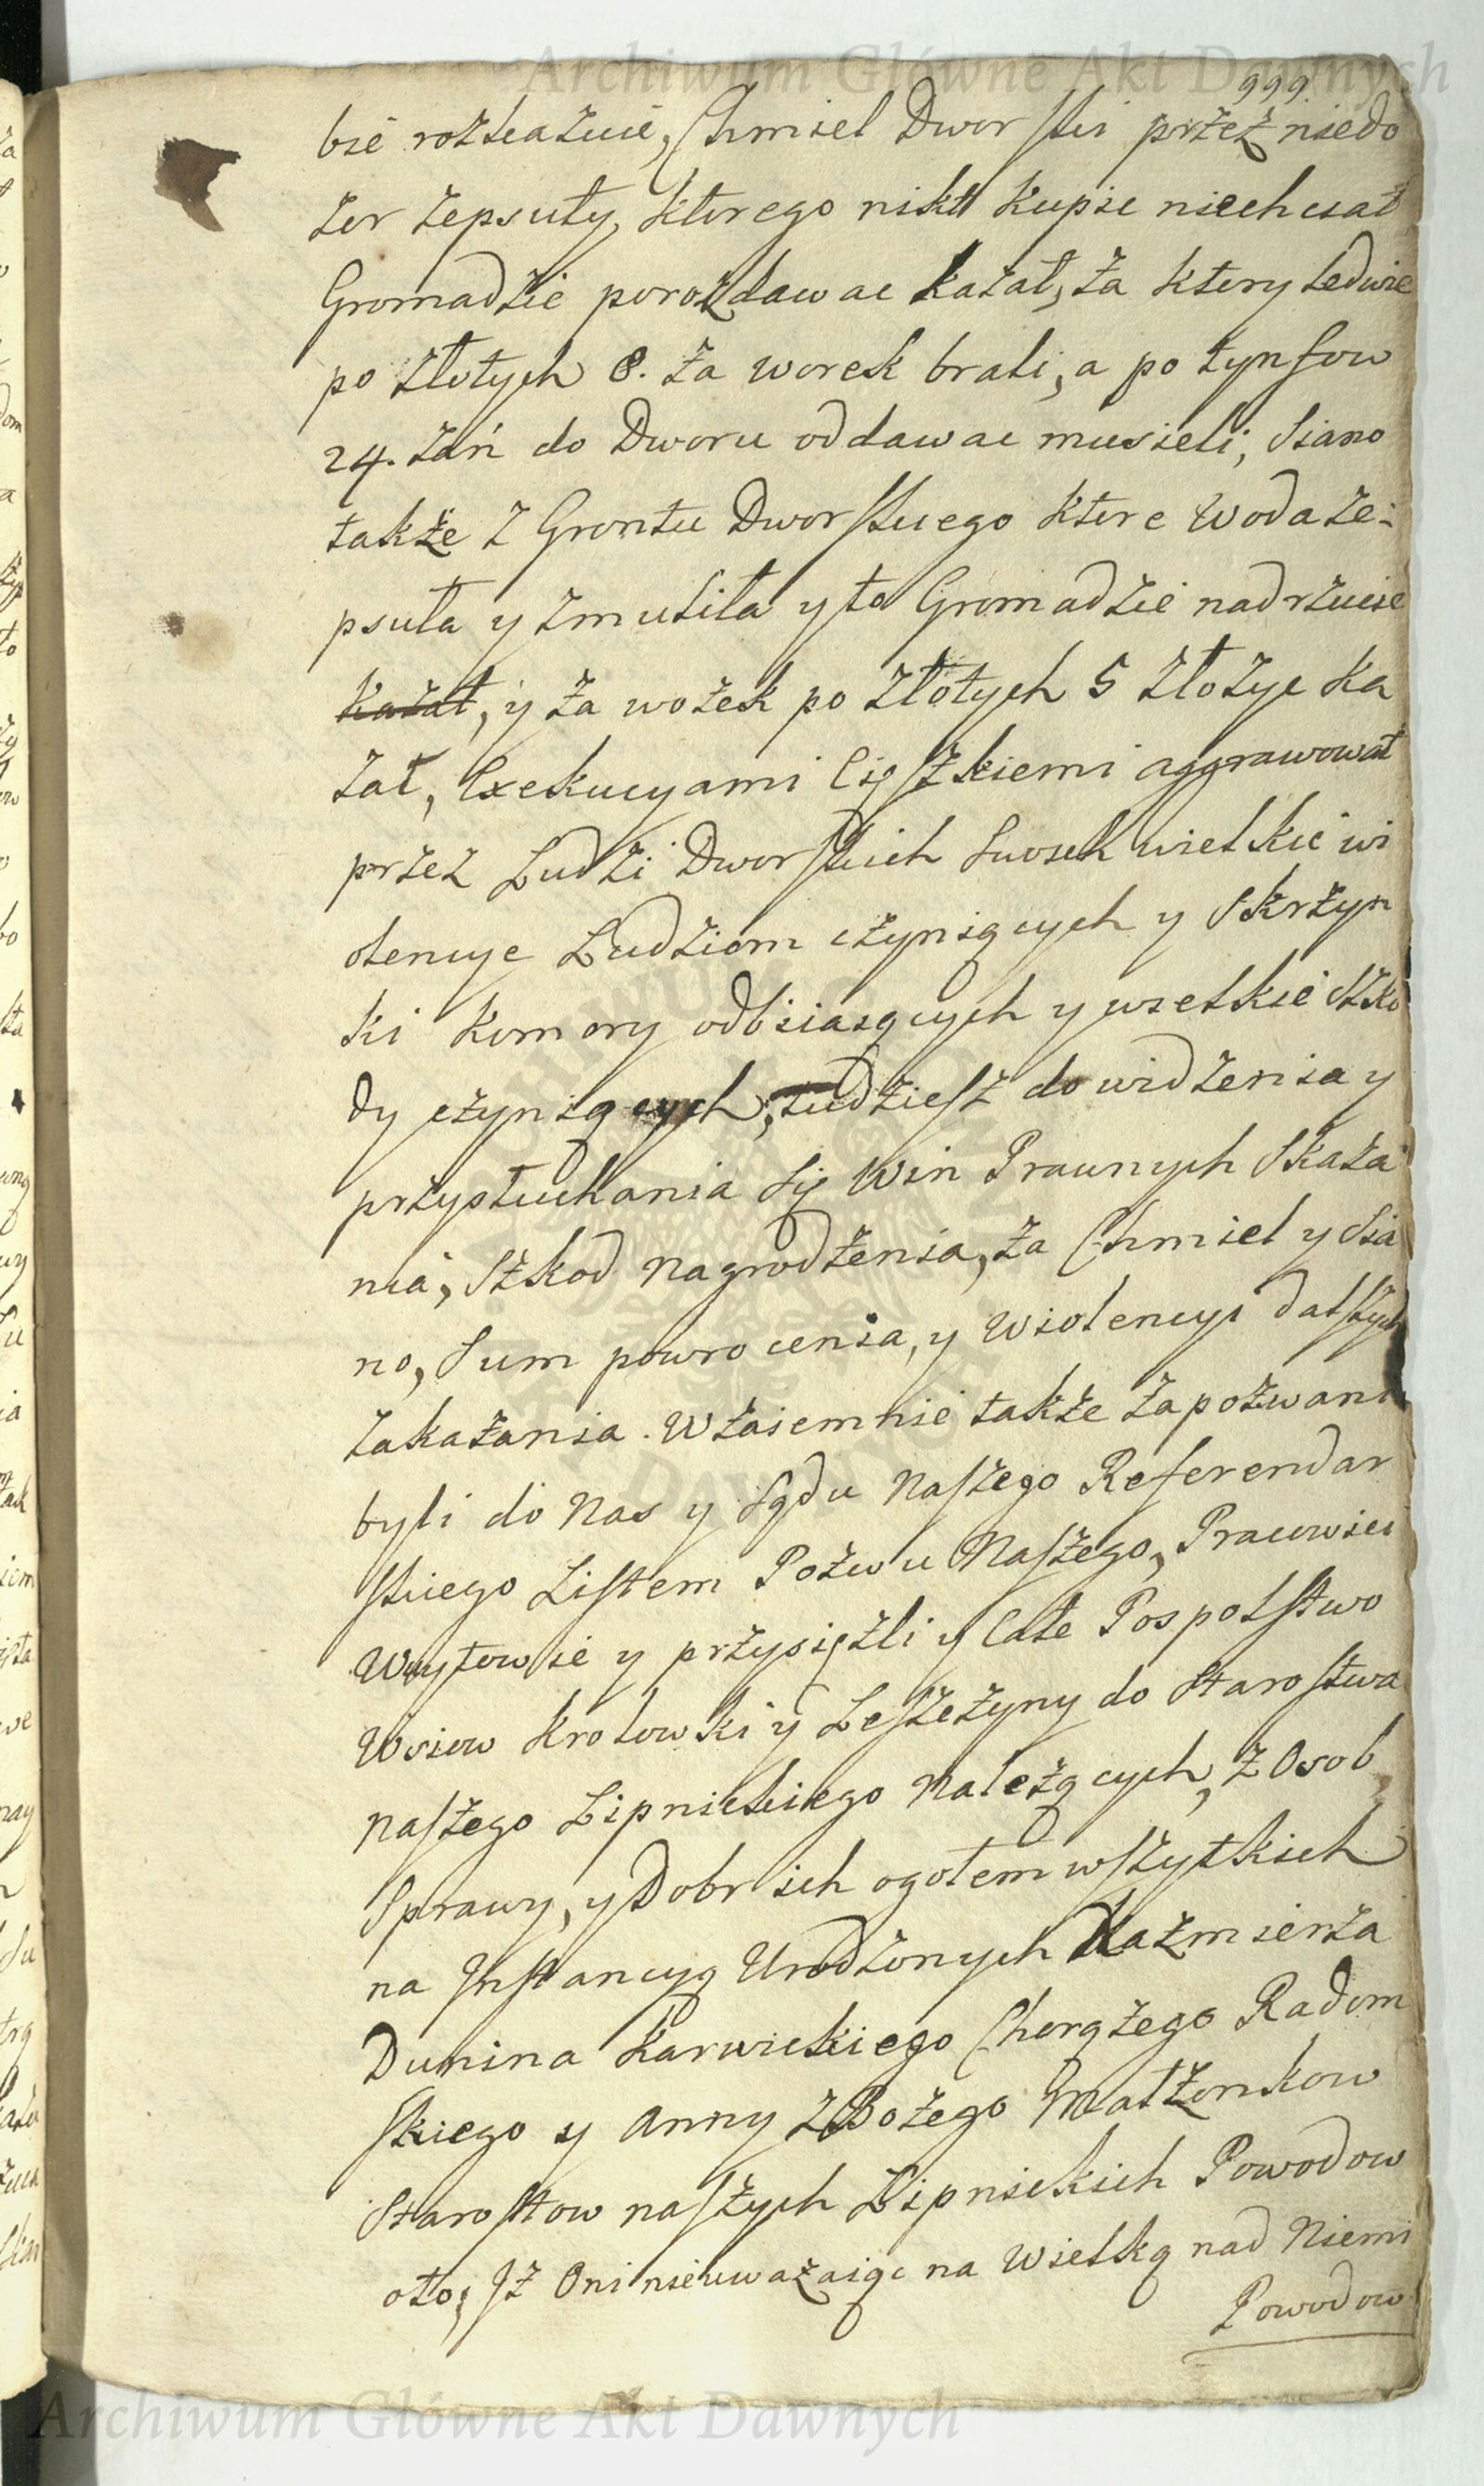 Archiwum Główne Akt Dawnych
999
bie rozkazuie, Chmiel Dworski przez niedo
zor zepsuty, ktorego nikt kupic niechciał
Gromadzie porozdawac kazał, za ktory ledwie
po złotych 8. za worek brali, a po tynfow
24. zań do Dworu oddawac musieli, Siano
także z Grontu Dworskiego ktore woda ze-
psuła y zmuliła y to Gromadzie nadrzucic
kazał, y za wozek po złotych 5 złożyc ka
zał, Exekucyami Cięszkiemi aggrawował
przez Ludzi Dworskich Swoich wielkie wi
olencye Ludziom czyniących y Skrzyn
ki komory odbiiaiących y wselkie szko
dy czyniących, tudziesz do widzenia y
przysłuchania się Win Prawnych Skaza
nia, Szkod nagrodzenia, za Chmiel y Sia
no, Sum powrocenia, y Wiolencyi dalszych
zakazania. Wzaiemnie także zapozwani
byli do Nas y Sądu Naszego Referendar
skiego Listem Pozwu Naszego, Pracowici
Woytowie y przysięzli y Całe Pospolstwo
Wsiow Krolowki y Leszczyny do Starostwa
naszego Lipnickiego Należących, z Osob,
Sprawy, y Dobr ich ogołem wszytkich
na Instancyą Urodzonych Kaźmierza
Dunina Karwickiego Chorążego Radom
skiego y Anny z Bożego Małżonkow
Starostow naszych Lipnickich Powodow
oto, Jż Oni nieuważaiąc na Wielką nad Niemi
Powodow
Archiwum Główne Akt Dawnych